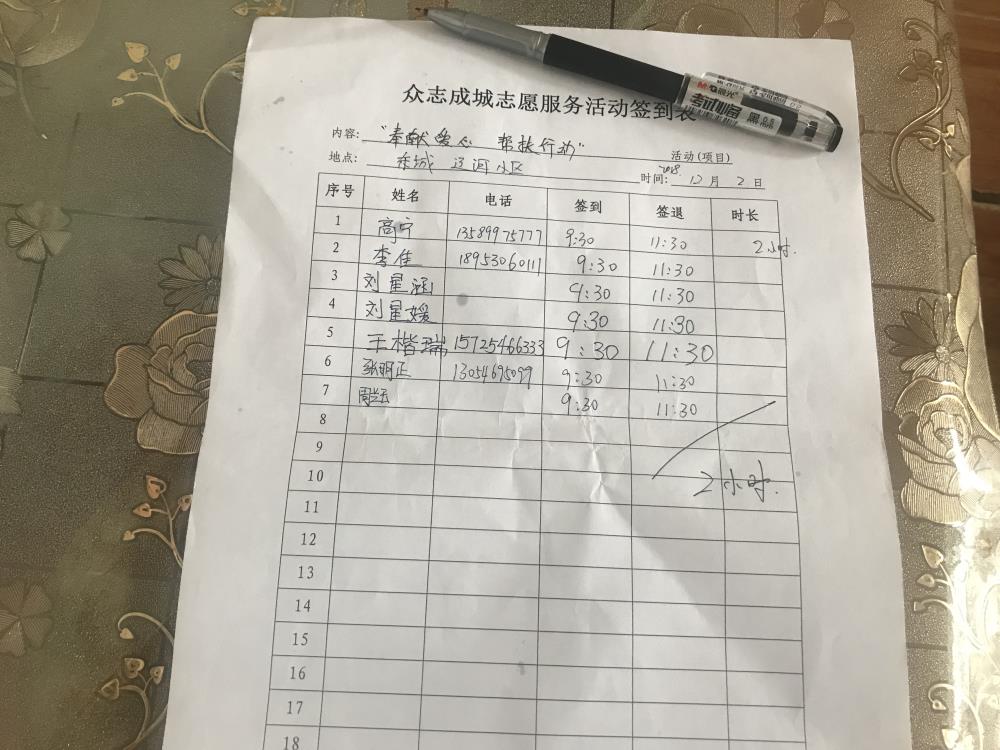 众志成城志愿服务活动签到表
内容: “奉献爱心 帮扶行动” 活动(项目)
地点: 东城 辽河小区 时间: 2018. 12月 2日
序号 姓名 电话 签到 签退 时长
1 高宁 13589975777 9:30 11:30 2小时.
2 李佳 18953060111 9:30 11:30
3 刘星涵 9:30 11:30
4 刘星媛 9:30 11:30
5 王楷瑞 15725466333 9:30 11:30
6 张明正 13054695099 9:30 11:30
7 9:30 11:30
8
9
10 2小时.
11
12
13
14
15
16
17
18
M&G 晨光 考试必备 黑 0.5